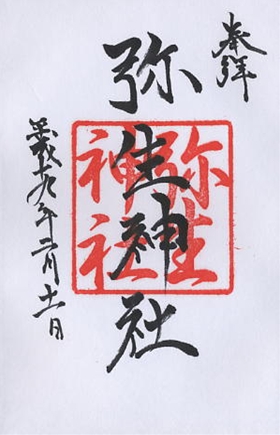 奉拝
弥生神社
弥生
神社
平成十九年二月十一日